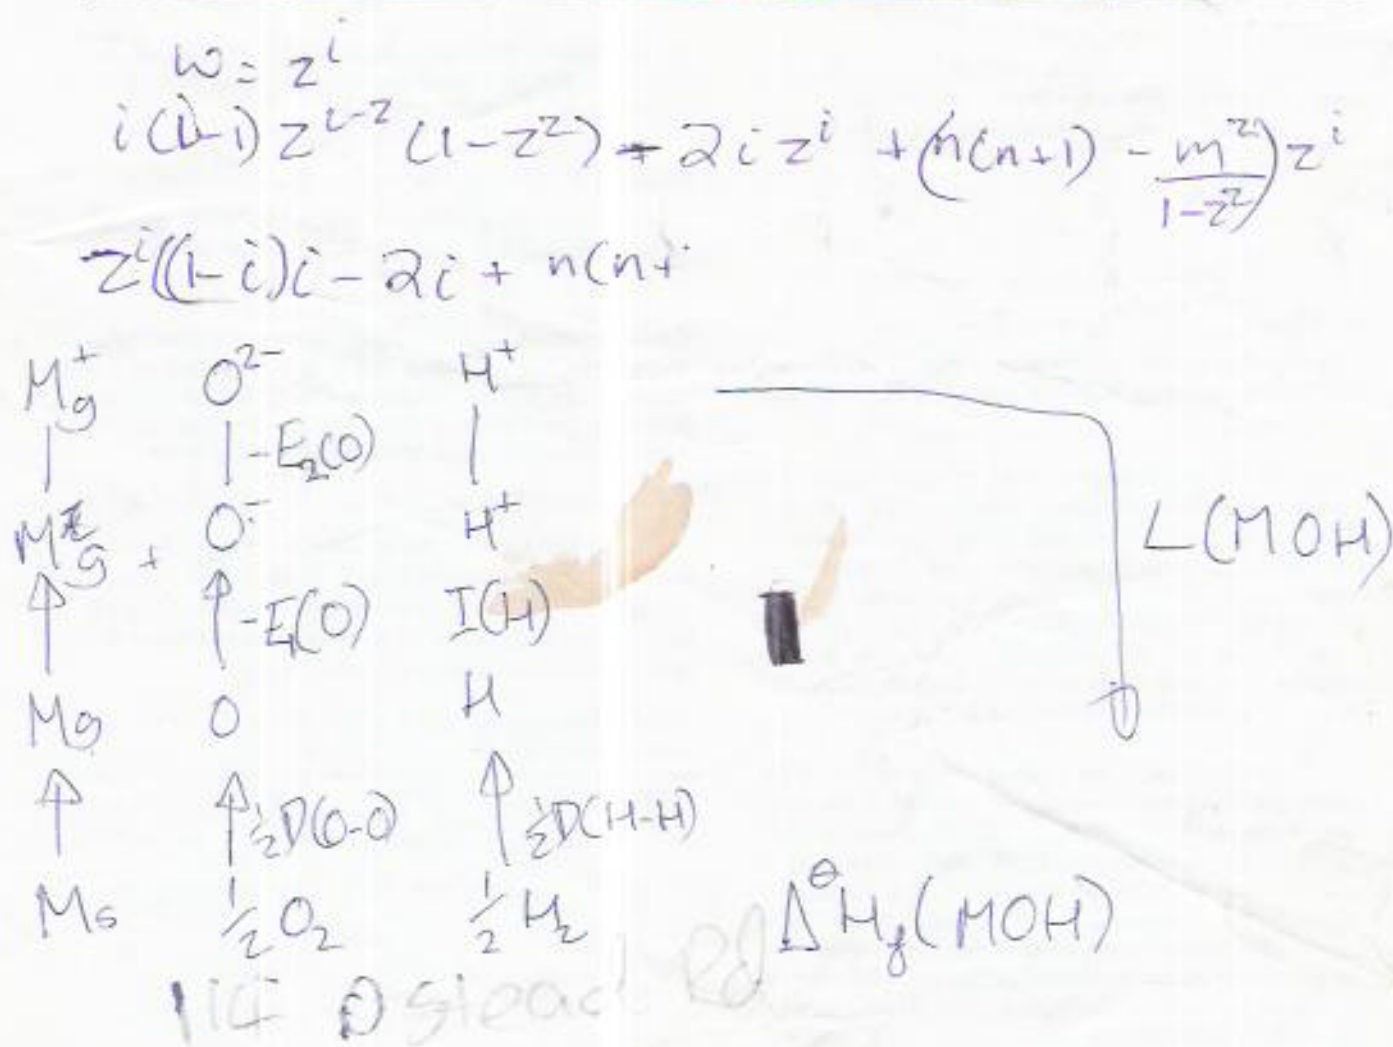 w = z^i
i(i-1) z^{i-2} (1-z^2) - 2i z^i + (n(n+1) - m^2/(1-z^2)) z^i
z^i((1-i)i - 2i + n(n+
M_g^+ O^{2-} H^+
-E_2(O)
M_g^+ + O^- H^+ L(MOH)
-E_1(O) I(H)
M_g O H
½D(O-O) ½D(H-H)
M_s ½O_2 ½H_2 Δ^⊖H_f(MOH)
Rd